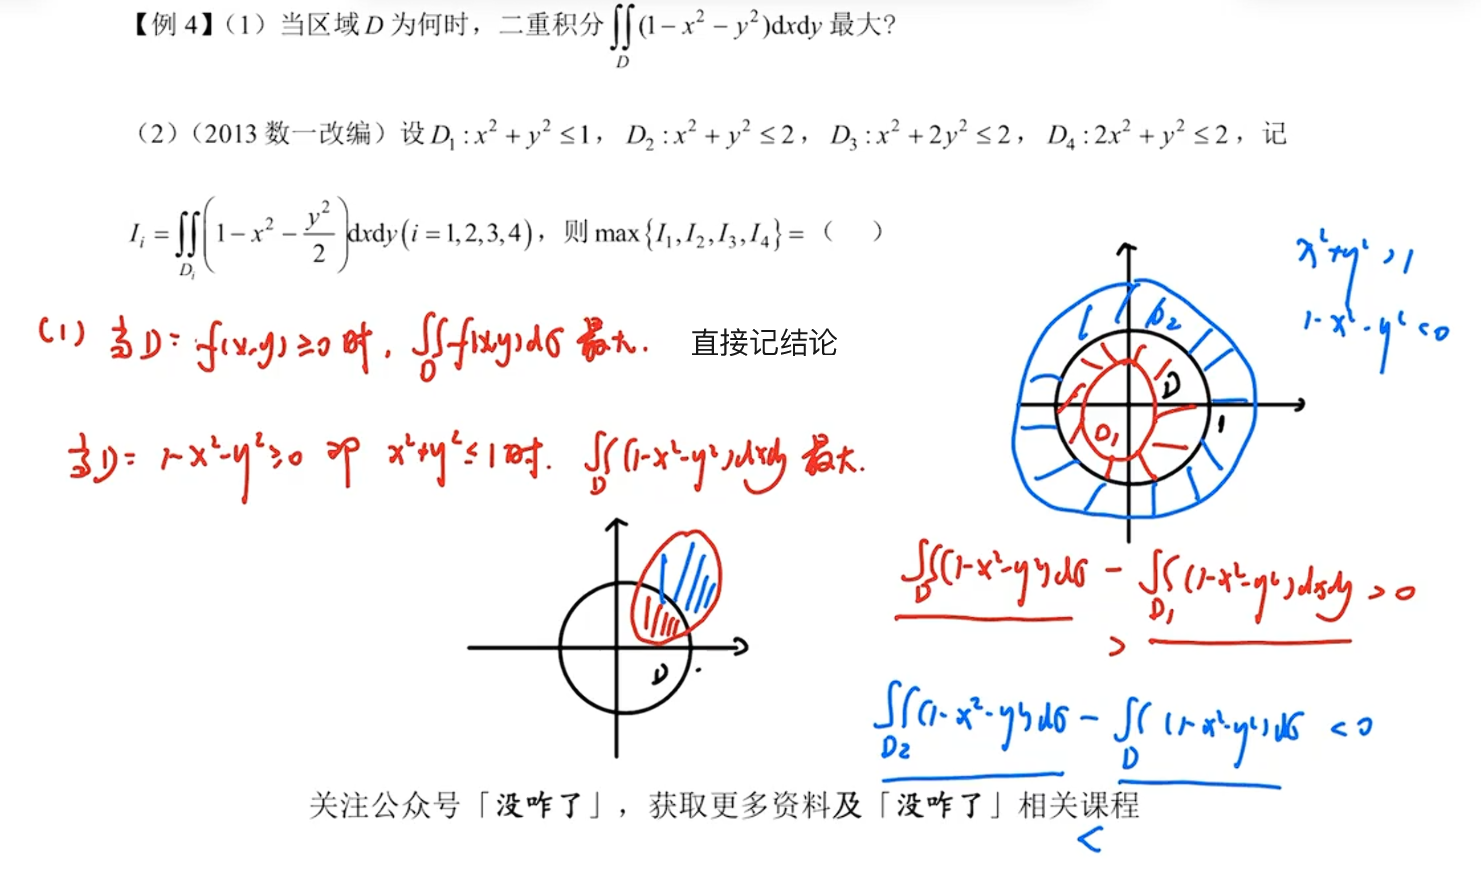 【例 4】(1) 当区域 D 为何时，二重积分 ∬_D (1-x²-y²)dxdy 最大?
(2)（2013 数一改编）设 D₁:x²+y²≤1， D₂:x²+y²≤2， D₃:x²+2y²≤2， D₄:2x²+y²≤2，记
I_i = ∬_{D_i} (1-x²-y²/2)dxdy(i=1,2,3,4)，则 max{I₁,I₂,I₃,I₄}=（ ）
x²+y²>1
1-x²-y²<0
(1) 当D: f(x,y)≥0 时, ∬_D f(x,y)dσ 最大.
直接记结论
D₂
D
1
D₁
当D: 1-x²-y²≥0 即 x²+y²≤1时. ∬_D (1-x²-y²)dxdy 最大.
D
∬_D (1-x²-y²)dσ - ∬_{D₁} (1-x²-y²)dxdy >0
>
∬_{D₂} (1-x²-y²)dσ - ∬_D (1-x²-y²)dσ <0
<
关注公众号「没咋了」，获取更多资料及「没咋了」相关课程